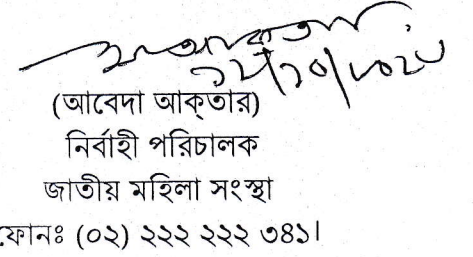 (আবেদা আক্তার)
নির্বাহী পরিচালক
জাতীয় মহিলা সংস্থা
ফোনঃ (০২) ২২২ ২২২ ৩৪১।